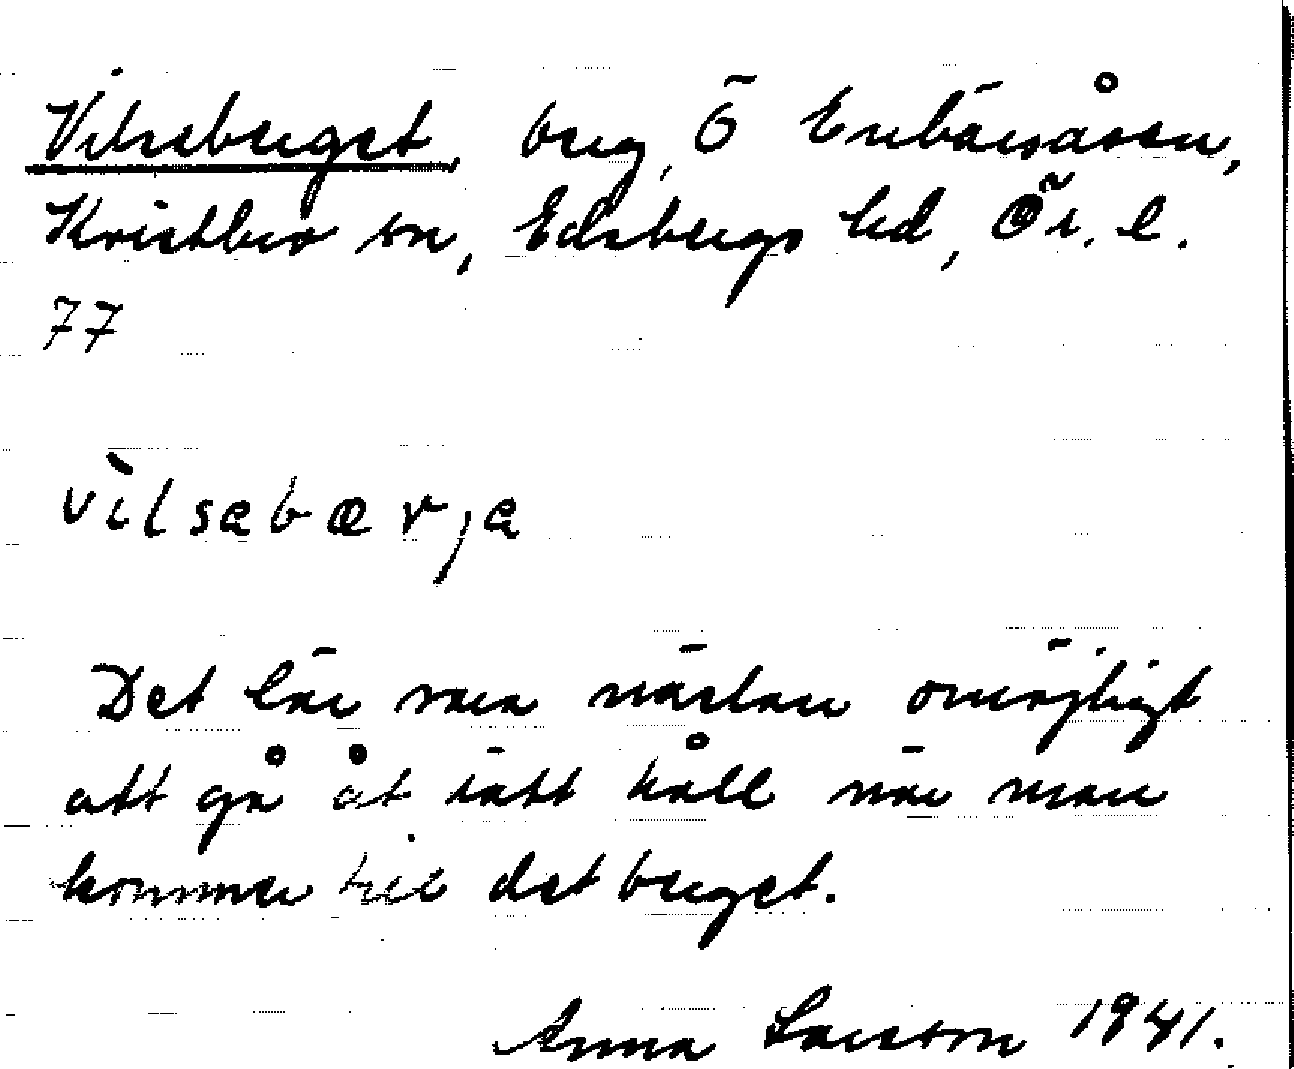 Vilseberget, berg, Ö Enbärsåsen,
Kvistbro sn, Edsbergs hd, Ör. l.
77
vìlsebærja
Det lär vara nästan omöjligt
att gå åt rätt håll när man
kommer till det berget.
Anna Larsson 1941.